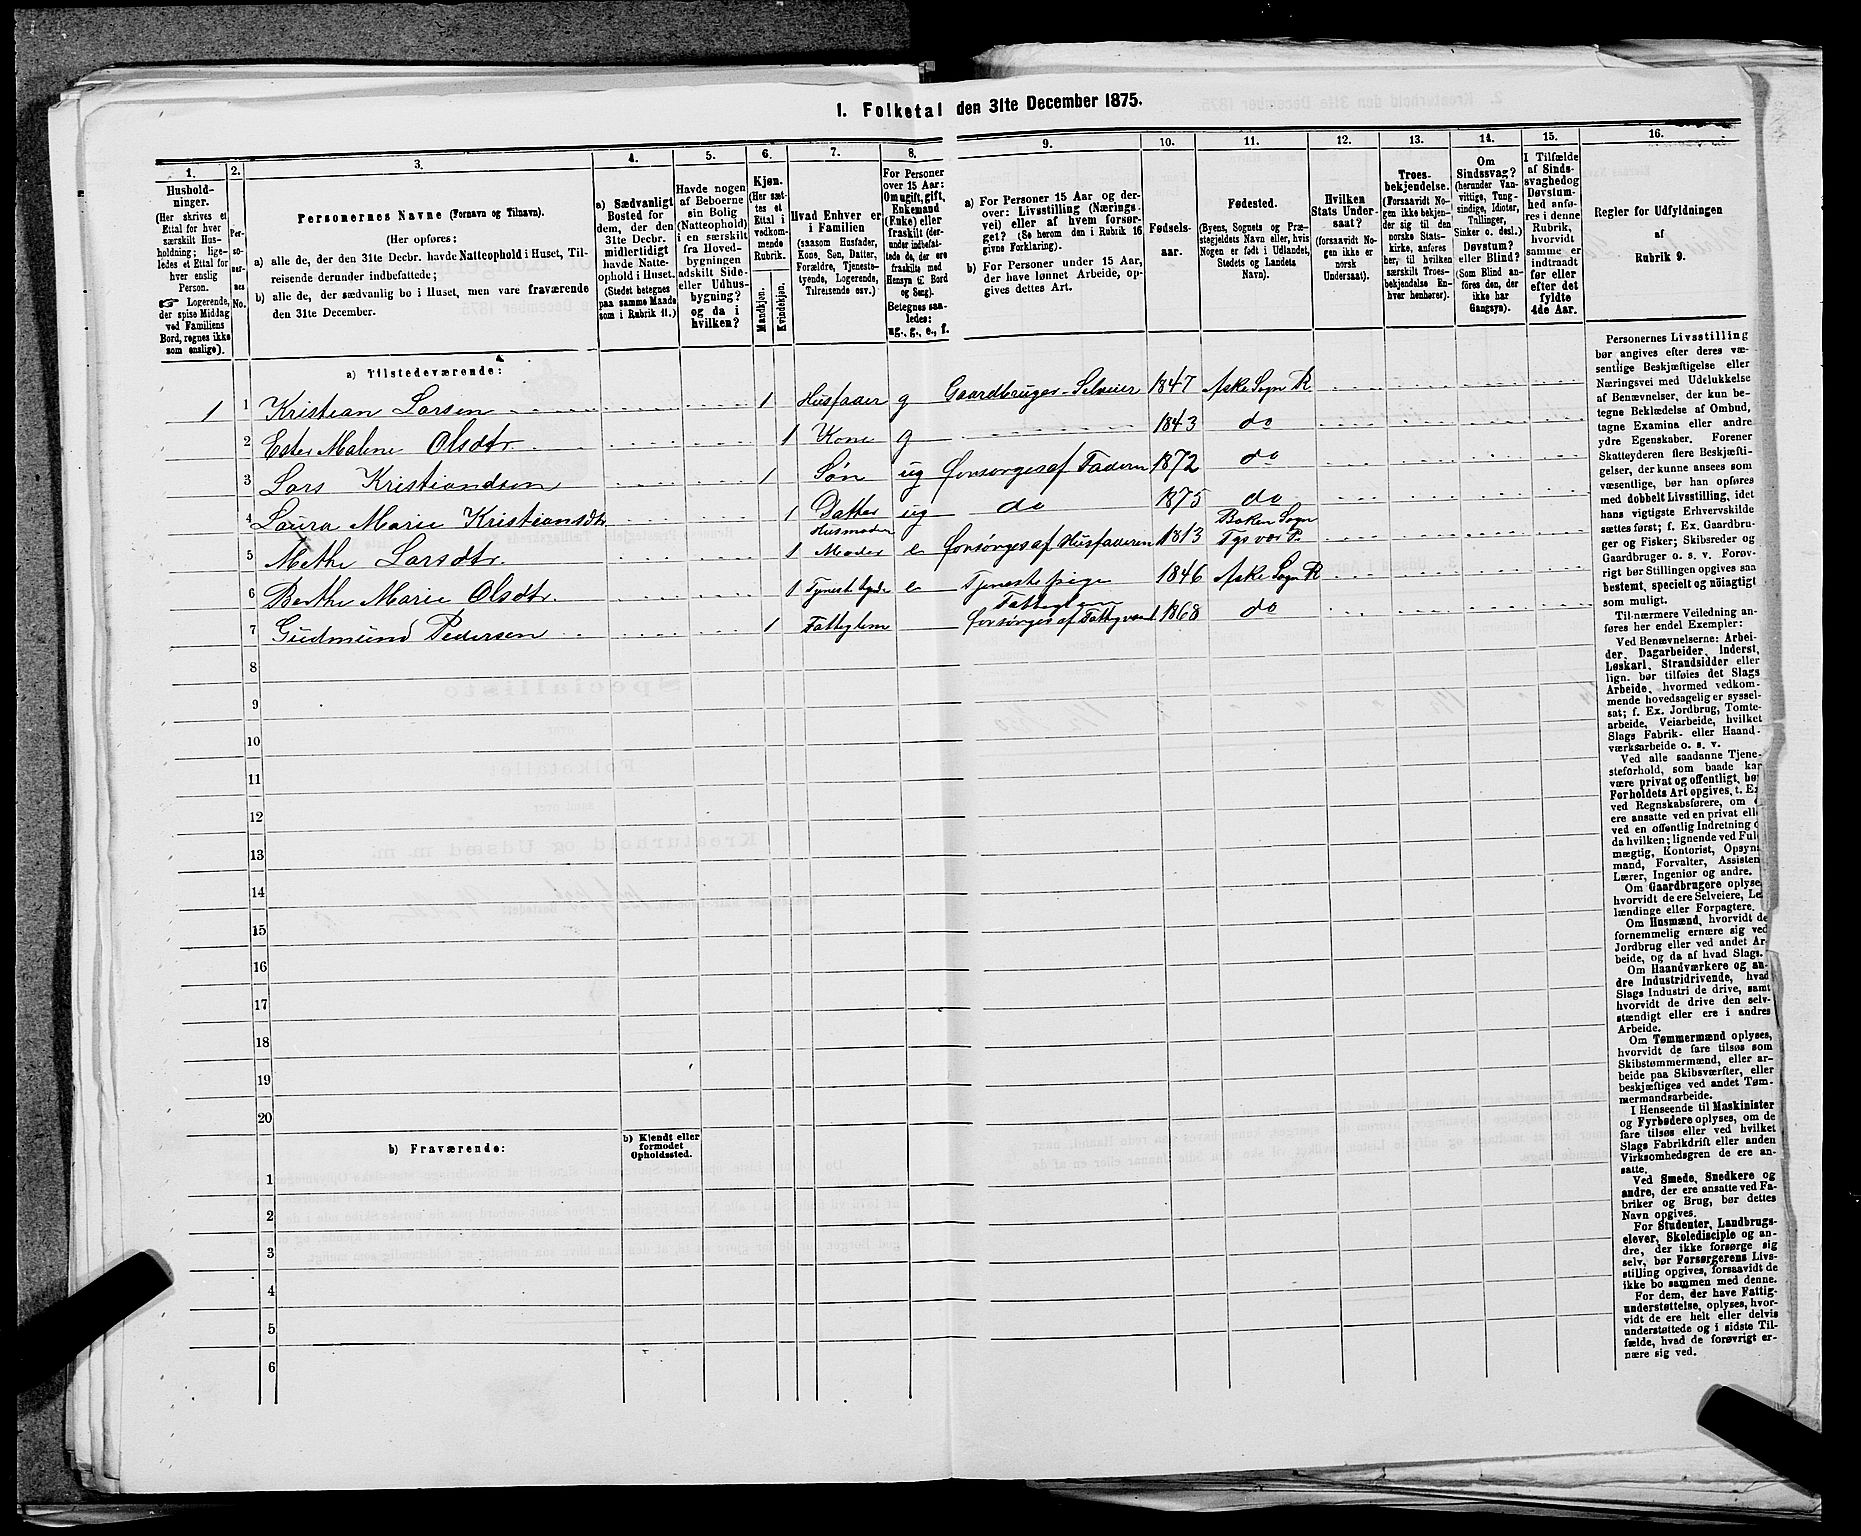 1. Folketal den 31te December 1875.
1.
2.
3.
4.
5.
6.
7.
8.
9.
10.
11.
12.
13.
14.
15.
16.
Hushold-
ninger.
(Her skrives et
Ettal for hver
særskilt Hus-
holdning; lige-
ledes et Ettal for
hver enslig
Person.
☞ Logerende,
der spise Middag
ved Familiens
Bord, regnes ikke
som enslige).
Per-
so-
ner-
nes
No.
Personernes Navne (Fornavn og Tilnavn).
(Her opføres:
a) alle de, der den 31te Decbr. havde Natteophold i Huset, Til-
reisende derunder indbefattede;
b) alle de, der sædvanlig bo i Huset, men vare fraværende
den 31te December.
a) Sædvanligt
Bosted for
dem, der den
31te Decbr.
midlertidigt
havde Natte-
ophold i Huset.
(Stedet betegnes
paa samme Maade
som i Rubrik 11.)
Havde nogen
af Beboerne
sin Bolig
(Natteophold)
i en særskilt
fra Hoved-
bygningen
adskilt Side-
eller Udhus-
bygning?
og da i
hvilken?
Kjøn.
(Her sæt-
tes et
Ettal i
vedkom-
mende
Rubrik.
Mandkjøn.
Kvindekjøn.
Hvad Enhver er
i Familien
(saasom Husfader,
Kone, Søn, Datter,
Forældre, Tjeneste-
tyende, Logerende,
Tilreisende osv.)
For Personer
over 15 Aar:
Om ugift, gift,
Enkemand
(Enke) eller
fraskilt (der-
under indbefat-
tede de, der ere
fraskilte med
Hensyn til Bord
og Seng).
Betegnes saa-
ledes:
ug., g., e., f.
a) For Personer 15 Aar og der-
over: Livsstilling (Nærings-
vei) eller af hvem forsør-
get? (Se herom den i Rubrik 16
givne Forklaring).
b) For Personer under 15 Aar,
der have lønnet Arbeide, op-
gives dettes Art.
Fødsels-
aar.
Fødested.
(Byens, Sognets og Præ-
stegjeldets Navn eller, hvis
Nogen er født i Udlandet,
Stedets og Landets
Navn).
Hvilken
Stats Under-
saat?
(forsaavidt No-
gen ikke er
norsk
Undersaat).
Troes-
bekjendelse.
(Forsaavidt No-
gen ikke bekjen-
der sig til den
norske Stats-
kirke, anføres
her, til hvilken
særskilt Troes-
bekjendelse En-
hver henhører).
Om
Sindssvag?
(herunder Van-
vittige, Tung-
sindige, Idioter,
Tullinger,
Sinker o. desl.)
Døvstum?
eller Blind?
(Som Blind an-
føres den, der
ikke har
Gangsyn).
I Tilfælde
af Sinds-
svaghedog
Døvstum-
hed anfø-
res i denne
Rubrik,
hvorvidt
samme er
indtraadt
før eller
efter det
fyldte
4de Aar.
Regler for Udfyldningen
af
Rubrik 9.
a) Tilstedeværende:
1 1 Kristian Larsen 1 Husfader g Gaardbruger Selveier 1847 Aske Sogn R
2 Ester Malene Olsdtr. 1 Kone g 1843 do
3 Lars Kristiandsen 1 Søn ug Forsørges af Faderen 1872 do
4 Laura Marie Kristiansdtr 1 Datter ug do 1875 do
Husmoder Boken Sogn
5 Methe Larsdtr. 1 Moder e Forsørges af Husfaderen 1813 Tysvær P.
6 Berthe Marie Olsdtr. 1 Tjenestetyde e Tjenestepige 1846 Aske Sogn R
Fatteglem
7 Gudmund Pedersen 1 Fatteglem forsørges af Fattigvæsd 1868 do
8
9
10
11
12
13
14
15
16
17
18
19
20
b) Fraværende:
b) Kjendt eller
formodet
Opholdssted.
1
2
3
4
5
6
Personernes Livsstilling
bør angives efter deres væ-
sentlige Beskjæftigelse eller
Næringsvei med Udelukkelse
af Benævnelser, der kun be-
tegne Beklædelse af Ombud,
tagne Examina eller andre
ydre Egenskaber. Forener
Skatteyderen flere Beskjæfti-
gelser, der kunne ansees som
væsentlige, bør han opføres
med dobbelt Livsstilling, idet
hans vigtigste Erhvervskilde
sættes først; f. Ex. Gaardbru-
ger og Fisker; Skibsreder og
Gaardbruger o. s. v. Forøv-
rigt bør Stillingen opgives saa
bestemt, specielt og nöiagtigt
som muligt.
Til nærmere Veiledning an-
føres her endel Exempler:
Ved Benævnelserne: Arbei-
der, Dagarbeider, Inderst,
Løskarl, Strandsidder eller
lign. bør tilføies det Slags
Arbeide, hvormed vedkom-
mende hovedsagelig er syssel-
sat; f. Ex. Jordbrug, Tomte-
arbeide, Veiarbeide, hvilket
Slags Fabrik- eller Haand-
værksarbeide o. s. v.
Ved alle saadanne Tjene-
steforhold, som baade kan
være privat og offentligt, bør
Forholdets Art opgives, t. Ex.
ved Regnskabsførere, om de
ere ansatte ved en privat eller
ved en offentlig Indretning og
da hvilken; lignende ved Ful-
mægtig, Kontorist, Opsyns-
mand, Forvalter, Assistent,
Lærer, Ingeniør og andre.
Om Gaardbrugere oplyses,
hvorvidt de ere Selveiere, Lei-
lændinge eller Forpagtere.
Om Husmænd, hvorvidt de
fornemmelig ernære sig ved
Jordbrug eller ved andet Ar-
beide, og da af hvad Slags.
Om Haandværkere og an-
dre Industridrivende, hvad
Slags Industri de drive, samt
hvorvidt de drive den selv-
stændigt eller ere i andres
Arbeide.
Om Tømmermænd oplyses,
hvorvidt de fare tilsøs som
Skibstømmermænd, eller ar-
beide paa Skibsværfter, eller
beskjæftiges ved andet Tøm-
mermandsarbeide.
I Henseende til Maskinister
og Fyrbødere oplyses, om de
fare tilsøs eller ved hvilket
Slags Fabrikdrift eller anden
Virksomhedsgren de ere an-
satte.
Ved Smede, Snedkere og
andre, der ere ansatte ved Fa-
briker og Brug, bør dettes
Navn opgives.
For Studenter, Landbrugs-
elever, Skoledisciple og an-
dre, der ikke forsørge sig
selv, bør Forsørgerens Livs-
stilling opgives, forsaavidt de
ikke bo sammen med denne.
For dem, der have Fattig-
understøttelse, oplyses, hvor-
vidt de ere helt eller delvis
understøttede og i sidste Til-
fælde, hvad de forøvrigt er-
nære sig ved.